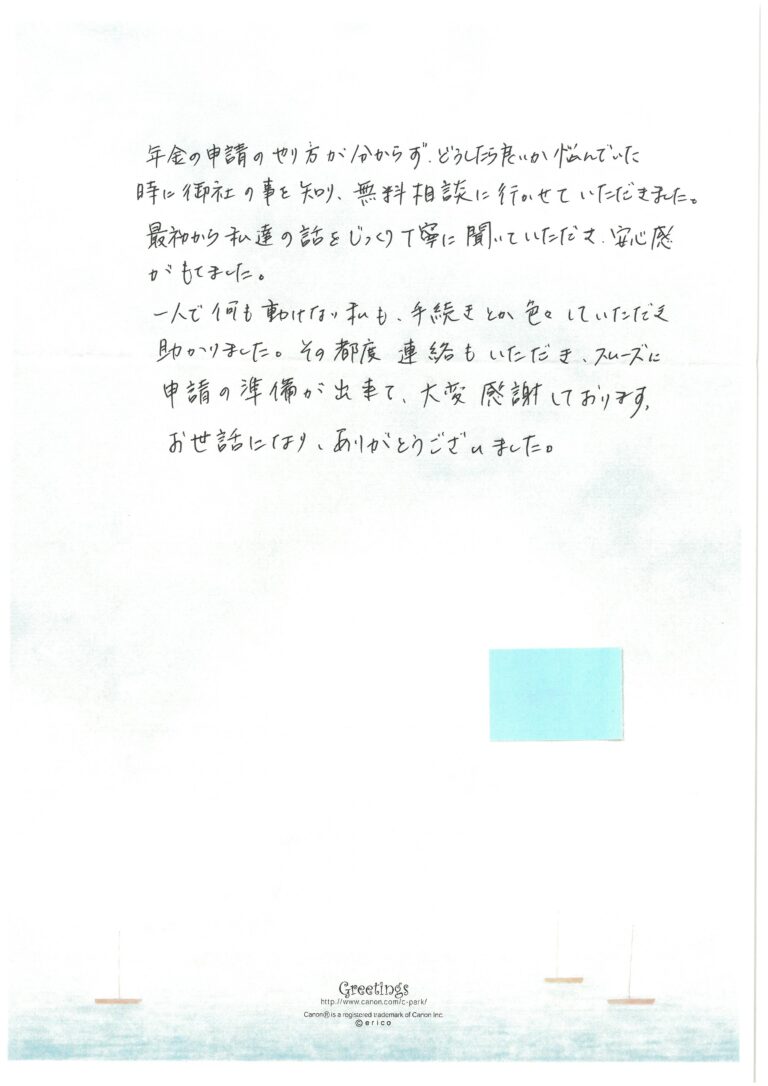 年金の申請のやり方が分からず、どうしたら良いか悩んでいた
時に御社の事を知り、無料相談に行かせていただきました。
最初から私達の話をじっくり丁寧に聞いていただき、安心感
がもてました。
一人で何も動けない私も、手続きとか色々していただき
助かりました。その都度連絡もいただき、スムーズに
申請の準備が出来て、大変感謝しております。
お世話になり、ありがとうございました。
Greetings
http://www.canon.com/c-park/
Canon® is a registered trademark of Canon Inc.
©erico